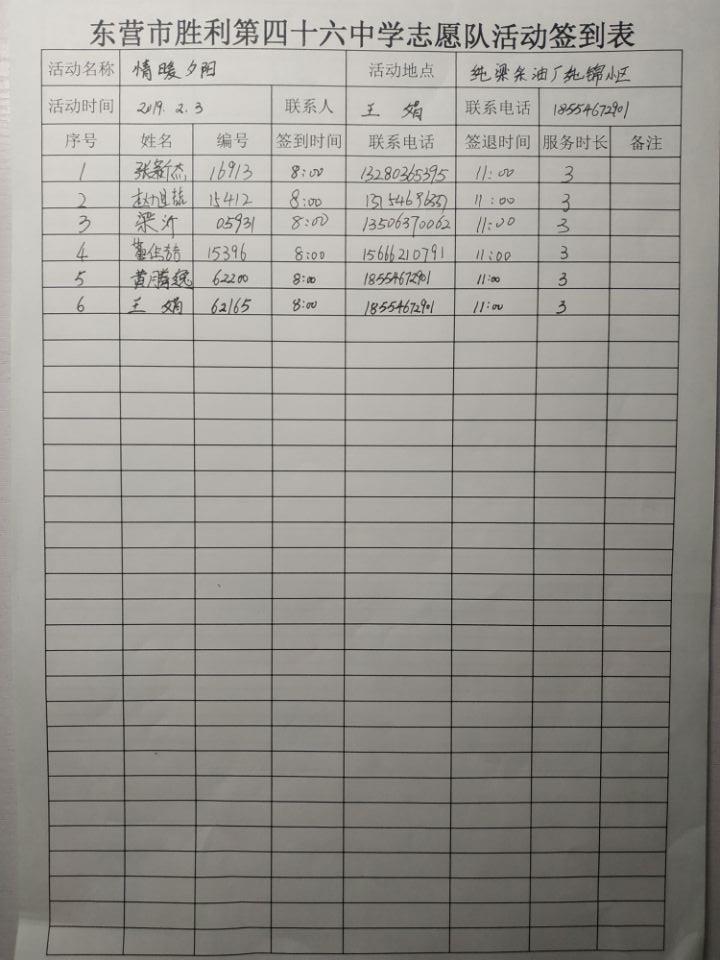 东营市胜利第四十六中学志愿队活动签到表
活动名称 情暖夕阳 活动地点 纯梁采油厂纯锦小区
活动时间 2019.2.3 联系人 王娟 联系电话 18554672901
序号 姓名 编号 签到时间 联系电话 签退时间 服务时长 备注
1 张新杰 16913 8:00 13280365395 11:00 3
2 15412 8:00 11:00 3
3 梁沂 05931 8:00 13506370062 11:00 3
4 15396 8:00 15666210791 11:00 3
5 黄腾逸 62200 8:00 18554672901 11:00 3
6 王娟 62165 8:00 18554672901 11:00 3